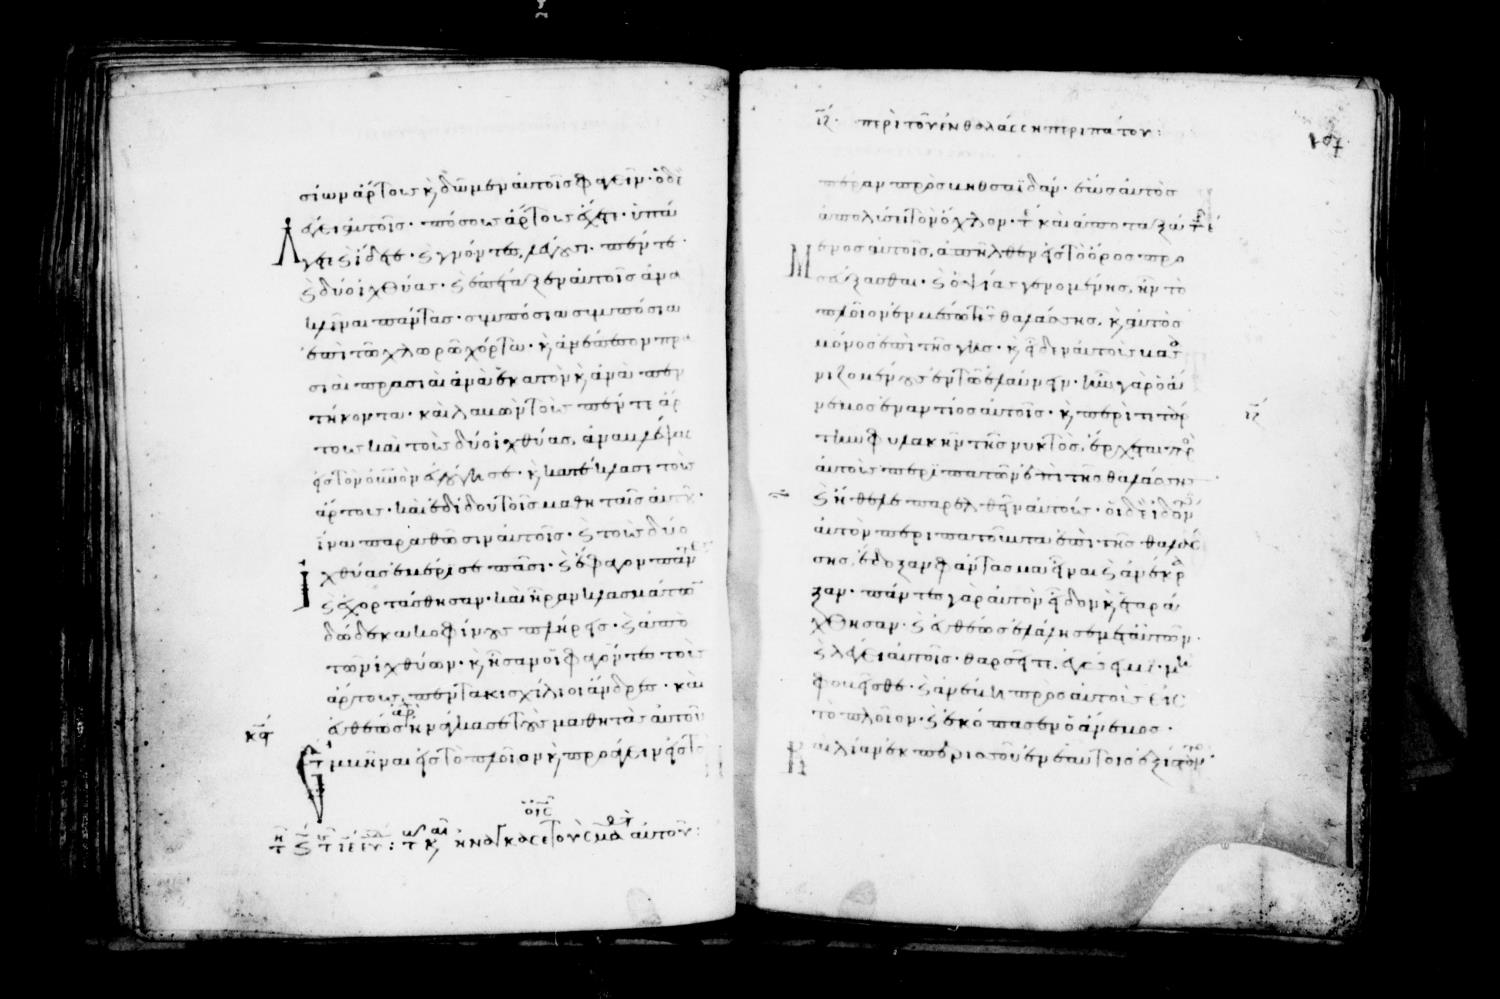 σίων ἄρτους κ δῶμεν αὐτοῖς φαγεῖν· ὁ δὲ
λέγει αὐτοῖς· πόσους ἄρτους ἔχετε· ὑπά
γετε ς ἴδετε· ς γνόντες, λέγουσι· πέντε
ς δύο ἰχθύας· ς ἐπέταξεν αὐτοῖς ἀνα
κλῖναι πάντας· συμπόσια συμπόσια
ἐπὶ τῶ χλωρῶ χόρτω· κ ἀνέπεσον πρα
σιαὶ πρασιαὶ ἀνὰ ἑκατὸν κ ἀνὰ πεν
τήκοντα· καὶ λαβὼν τοὺς πέντε ἄρ
τους καὶ τοὺς δύο ἰχθύας, ἀναβλέψας
εἰς τὸν οὐνὸν εὐλόγησε· κ κατέκλασε τοὺς
ἄρτους· καὶ ἐδίδου τοῖς μαθηταῖς αὐτοῦ·
ἵνα παραθῶσιν αὐτοῖς· ς τοὺς δύο
ἰχθύας ἐμέρισε πᾶσι· ς ἔφαγον πάντες
ς ἐχορτάσθησαν· καὶ ἦραν κλασμάτων
δώδεκα κοφίνους πλήρεις· ς ἀπὸ
τῶν ἰχθύων· κ ἦσαν οἱ φαγόντες τοὺς
ἄρτους, πεντακισχίλιοι ἄνδρες· καὶ
εὐθέως ἠνάγκασε τοὺς μαθητὰς αὐτοῦ
ἐμβῆναι εἰς τὸ πλοῖον κ προάγειν εἰς τὸ
ἠνάγκασε τοὺς μαθ αὐτοῦ:
ιζ· περὶ τοῦ ἐν θαλάσση περιπάτου:
107
πέραν πρὸς βηθσαϊδάν· ἕως αὐτὸς
ἀπολύσει τὸν ὄχλον· καὶ ἀποταξά
μενος αὐτοῖς, ἀπῆλθεν εἰς τὸ ὄρος προ
σεύξασθαι· ς ὀψίας γενομένης, ἦν τὸ
πλοῖον ἐν μέσω τῆς θαλάσσης, κ αὐτὸς
μόνος ἐπὶ τῆς γῆς· κ εἶδεν αὐτοὺς βασα
νιζομένους ἐν τῶ ἐλαύνειν· ἦν γὰρ ὁ ἄ
νεμος ἐναντίος αὐτοῖς· κ περὶ τετάρ
την φυλακὴν τῆς νυκτὸς, ἔρχεται πρὸς
αὐτοὺς περιπατῶν ἐπὶ τῆς θαλάσσης
ς ἤθελε παρελθεῖν αὐτούς· οἱ δὲ ἰδόντες
αὐτὸν περιπατοῦντα ἐπὶ τῆς θαλάσ
σης, ἔδοξαν φάντασμα εἶναι ς ἀνέκρα
ξαν· πάντες γὰρ αὐτὸν εἶδον κ ἐταρά
χθησαν· ς εὐθέως ἐλάλησε μετ' αὐτῶν·
ς λέγει αὐτοῖς· θαρσεῖτε, ἐγώ εἰμι· μὴ
φοβεῖσθε· ς ἀνέβη πρὸς αὐτοὺς εἰς
τὸ πλοῖον· ς ἐκόπασεν ὁ ἄνεμος·
καὶ λίαν ἐκ περισσοῦ ἐν ἑαυτοῖς ἐξίσταντο·